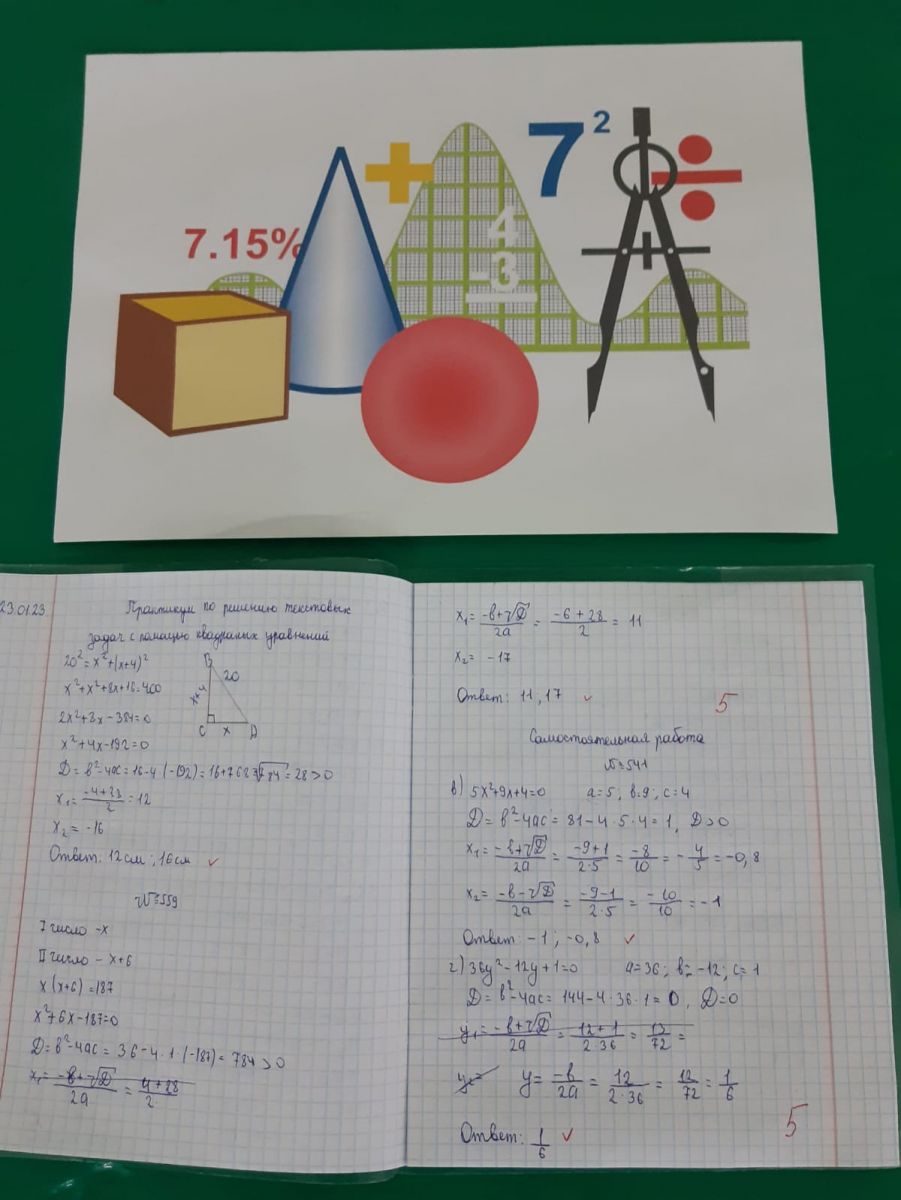 7.15%
+
7²
÷
4
-3
23.01.23.
Практикум по решению текстовых
задач с помощью квадратных уравнений
20²=x²+(x+4)²
x²+x²+8x+16=400
2x²+8x-384=0
x²+4x-192=0
B
20
x+4
C
x
D
D=b²-4ac=16-4(-192)=16+768 √784=28>0
x₁= (-4+28)/2 =12
x₂= -16
Ответ: 12см ; 16см ✓
№559
I число -x
II число - x+6
x(x+6)=187
x²+6x-187=0
D=b²-4ac=36-4·1·(-187)=784>0
x₁= (-b+√D)/2a = (4+28)/2
x₁= (-b+√D)/2a = (-6+28)/2 = 11
x₂= -17
Ответ: 11,17 ✓
5
Самостоятельная работа
№541
в) 5x²+9x+4=0 a=5; b=9, c=4
D=b²-4ac=81-4·5·4=1, D>0
x₁= (-b+√D)/2a = (-9+1)/2·5 = -8/10 = -4/5 = -0,8
x₂= (-b-√D)/2a = (-9-1)/2·5 = -10/10 = -1
Ответ: -1; -0,8 ✓
г) 36y²-12y+1=0 a=36; b=-12; c=1
D=b²-4ac=144-4·36·1=0, D=0
y₁= (-b+√D)/2a = (12+1)/2·36 = 13/72 =
y= -b/2a = 12/2·36 = 12/72 = 1/6
Ответ: 1/6 ✓
5